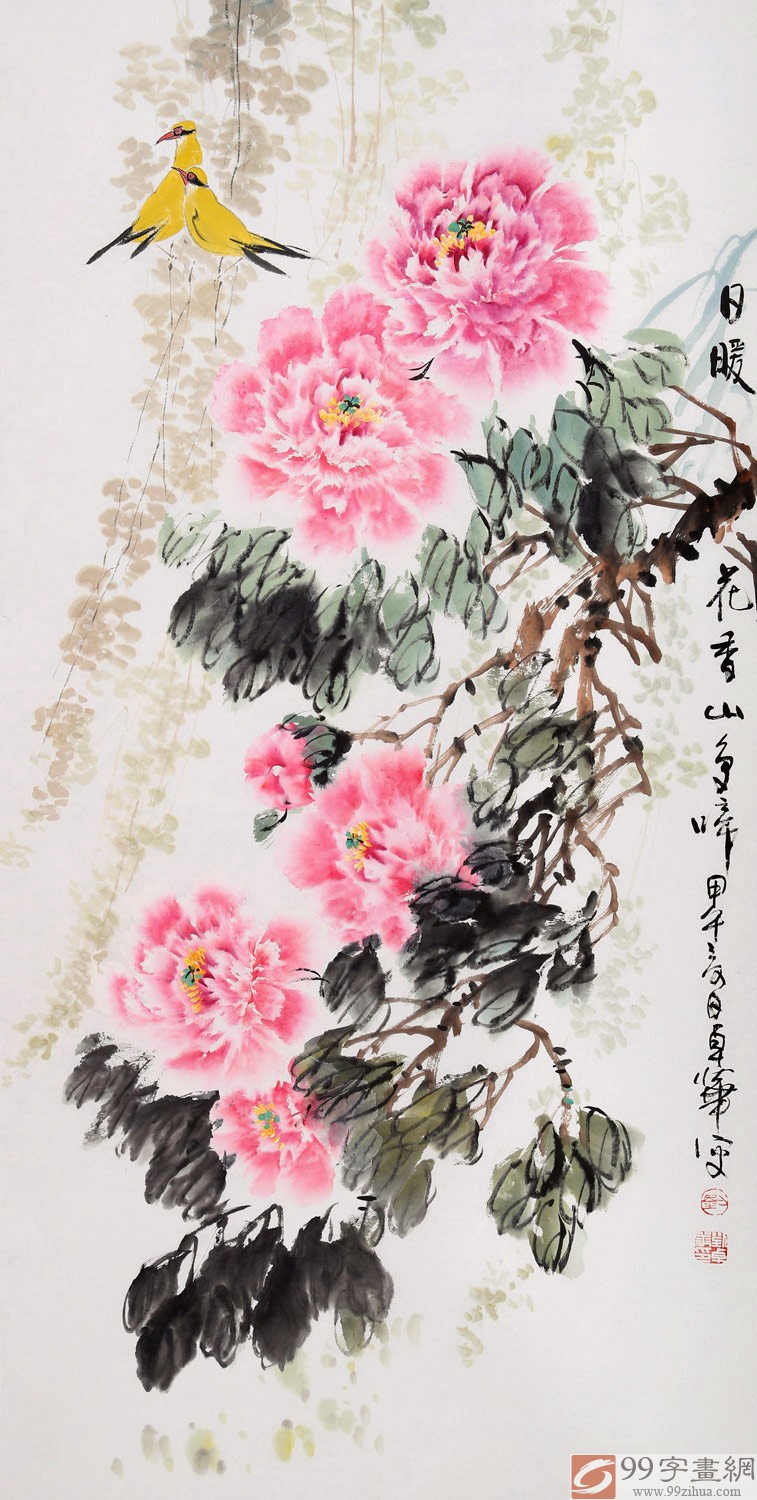 日暖花香山鸟啼
甲午之夏日卓華写
99字畫網
www.99zihua.com